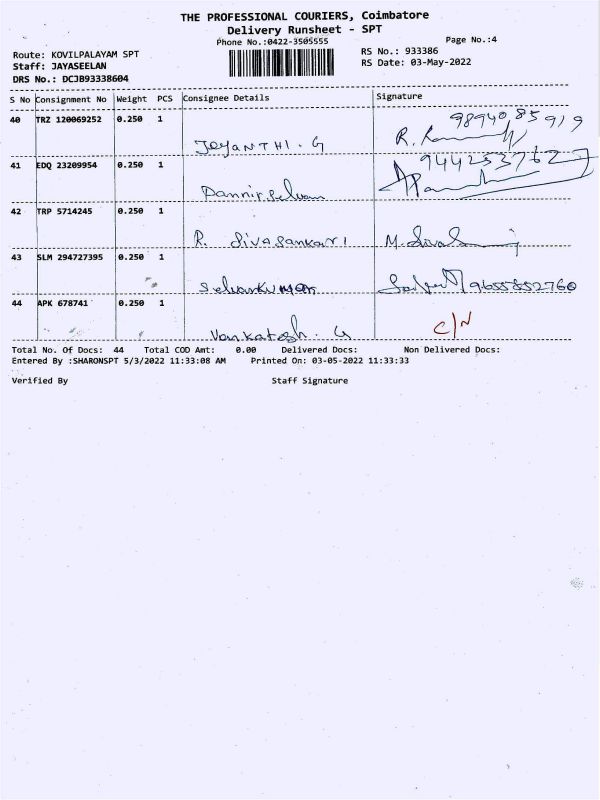 THE PROFESSIONAL COURIERS, Coimbatore
Delivery Runsheet - SPT
Phone No.:0422-3505555
Page No.:4
Route: KOVILPALAYAM SPT
RS No.: 933386
Staff: JAYASEELAN
RS Date: 03-May-2022
DRS No.: DCJB93338604
S No Consignment No Weight PCS Consignee Details Signature
40 TRZ 120069252 0.250 1
9894085919
Jeyanthi. G
41 EDQ 23209954 0.250 1
9442537627
Pannir Selvam
42 TRP 5714245 0.250 1
R. Sivasankari
43 SLM 294727395 0.250 1
Selvankumar 9655852760
44 APK 678741 0.250 1
Vankatesh. G C/N
Total No. Of Docs: 44 Total COD Amt: 0.00 Delivered Docs: Non Delivered Docs:
Entered By :SHARONSPT 5/3/2022 11:33:08 AM Printed On: 03-05-2022 11:33:33
Verified By Staff Signature